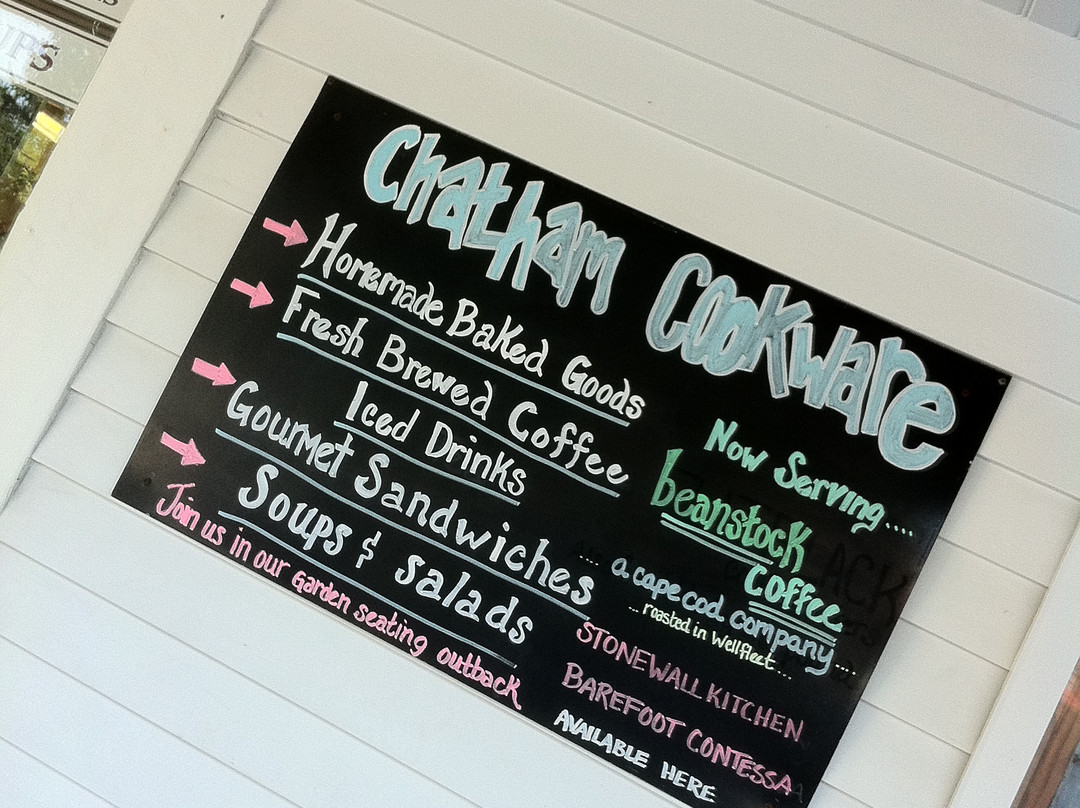 Chatham Cookware
Homemade Baked Goods
Fresh Brewed Coffee
Iced Drinks
Gourmet Sandwiches
Soups & Salads
Join us in our Garden seating outback
Now Serving....
beanstock
Coffee
a cape cod company....
... roasted in Wellfleet...
STONEWALL KITCHEN
BAREFOOT CONTESSA
AVAILABLE HERE